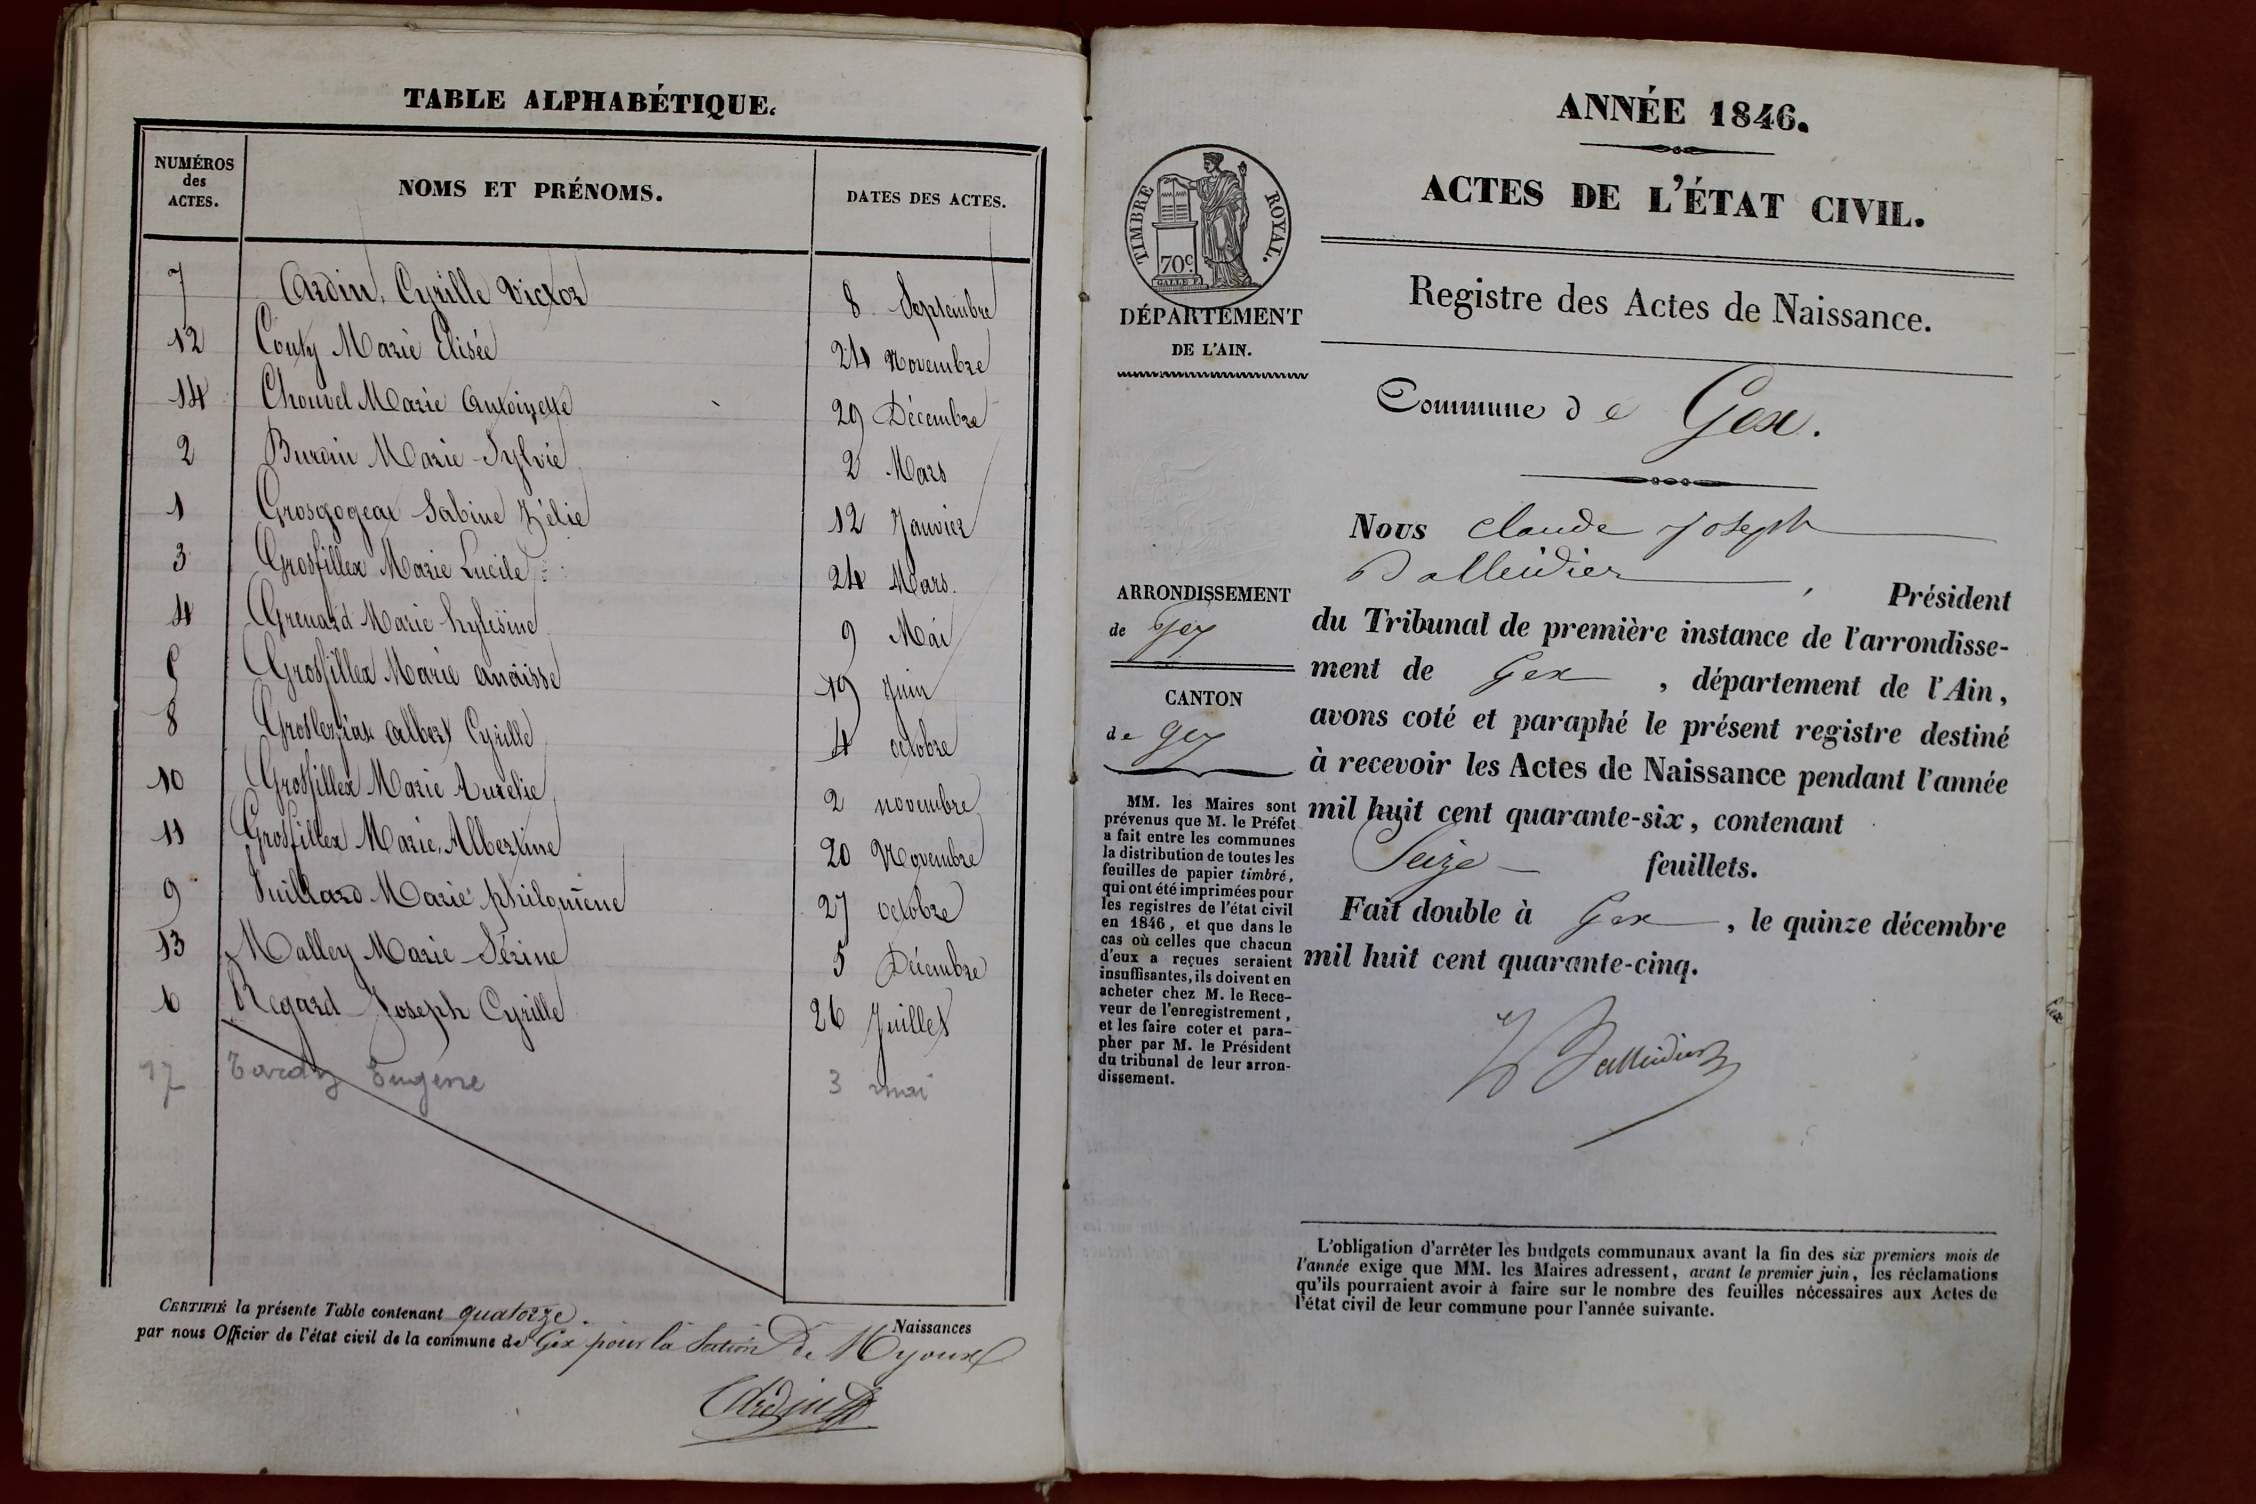 TABLE ALPHABÉTIQUE.
NUMÉROS
des
ACTES.
NOMS ET PRÉNOMS.
DATES DES ACTES.
7 Ardin, Cyrille Victor 8 Septembre
12 Couty Marie Elisée 24 Novembre
14 Chouvel Marie Antoinette 29 Décembre
2 Burdin Marie Sylvie 2 Mars
1 Grosgogeat Sabine Zélie 12 Janvier
3 Grosfillex Marie Lucile 24 Mars.
4 Grenard Marie 9 Mai
Grosfillex Marie Anaisse 19 Juin
8 Albert Cyrille 4 octobre
10 Grosfillex Marie Aurelie 2 novembre
11 Grosfillex Marie Albertine 20 Novembre
9 Vuillard Marie philomène 27 octobre
13 Malley Marie Sérine 5 Décembre
6 Regard Joseph Cyrille 26 Juillet
17 Tardy Eugene 3 mai
CERTIFIÉ la présente Table contenant quatorze. Naissances
par nous Officier de l'état civil de la commune de Gex pour la Section De Myoux
ANNÉE 1846.
ACTES DE L'ÉTAT CIVIL.
TIMBRE ROYAL.
70c.
DÉPARTEMENT
DE L'AIN.
Registre des Actes de Naissance.
Commune de Gex.
ARRONDISSEMENT
de Gex
CANTON
de Gex
MM. les Maires sont
prévenus que M. le Préfet
a fait entre les communes
la distribution de toutes les
feuilles de papier timbré,
qui ont été imprimées pour
les registres de l'état civil
en 1846, et que dans le
cas où celles que chacun
d'eux a reçues seraient
insuffisantes, ils doivent en
acheter chez M. le Rece-
veur de l'enregistrement,
et les faire coter et para-
pher par M. le Président
du tribunal de leur arron-
dissement.
Nous Claude Joseph
Balleidier, Président
du Tribunal de première instance de l'arrondisse-
ment de Gex, département de l'Ain,
avons coté et paraphé le présent registre destiné
à recevoir les Actes de Naissance pendant l'année
mil huit cent quarante-six, contenant
Seize feuillets.
Fait double à Gex, le quinze décembre
mil huit cent quarante-cinq.
Balleidier
L'obligation d'arrêter les budgets communaux avant la fin des six premiers mois de
l'année exige que MM. les Maires adressent, avant le premier juin, les réclamations
qu'ils pourraient avoir à faire sur le nombre des feuilles nécessaires aux Actes de
l'état civil de leur commune pour l'année suivante.